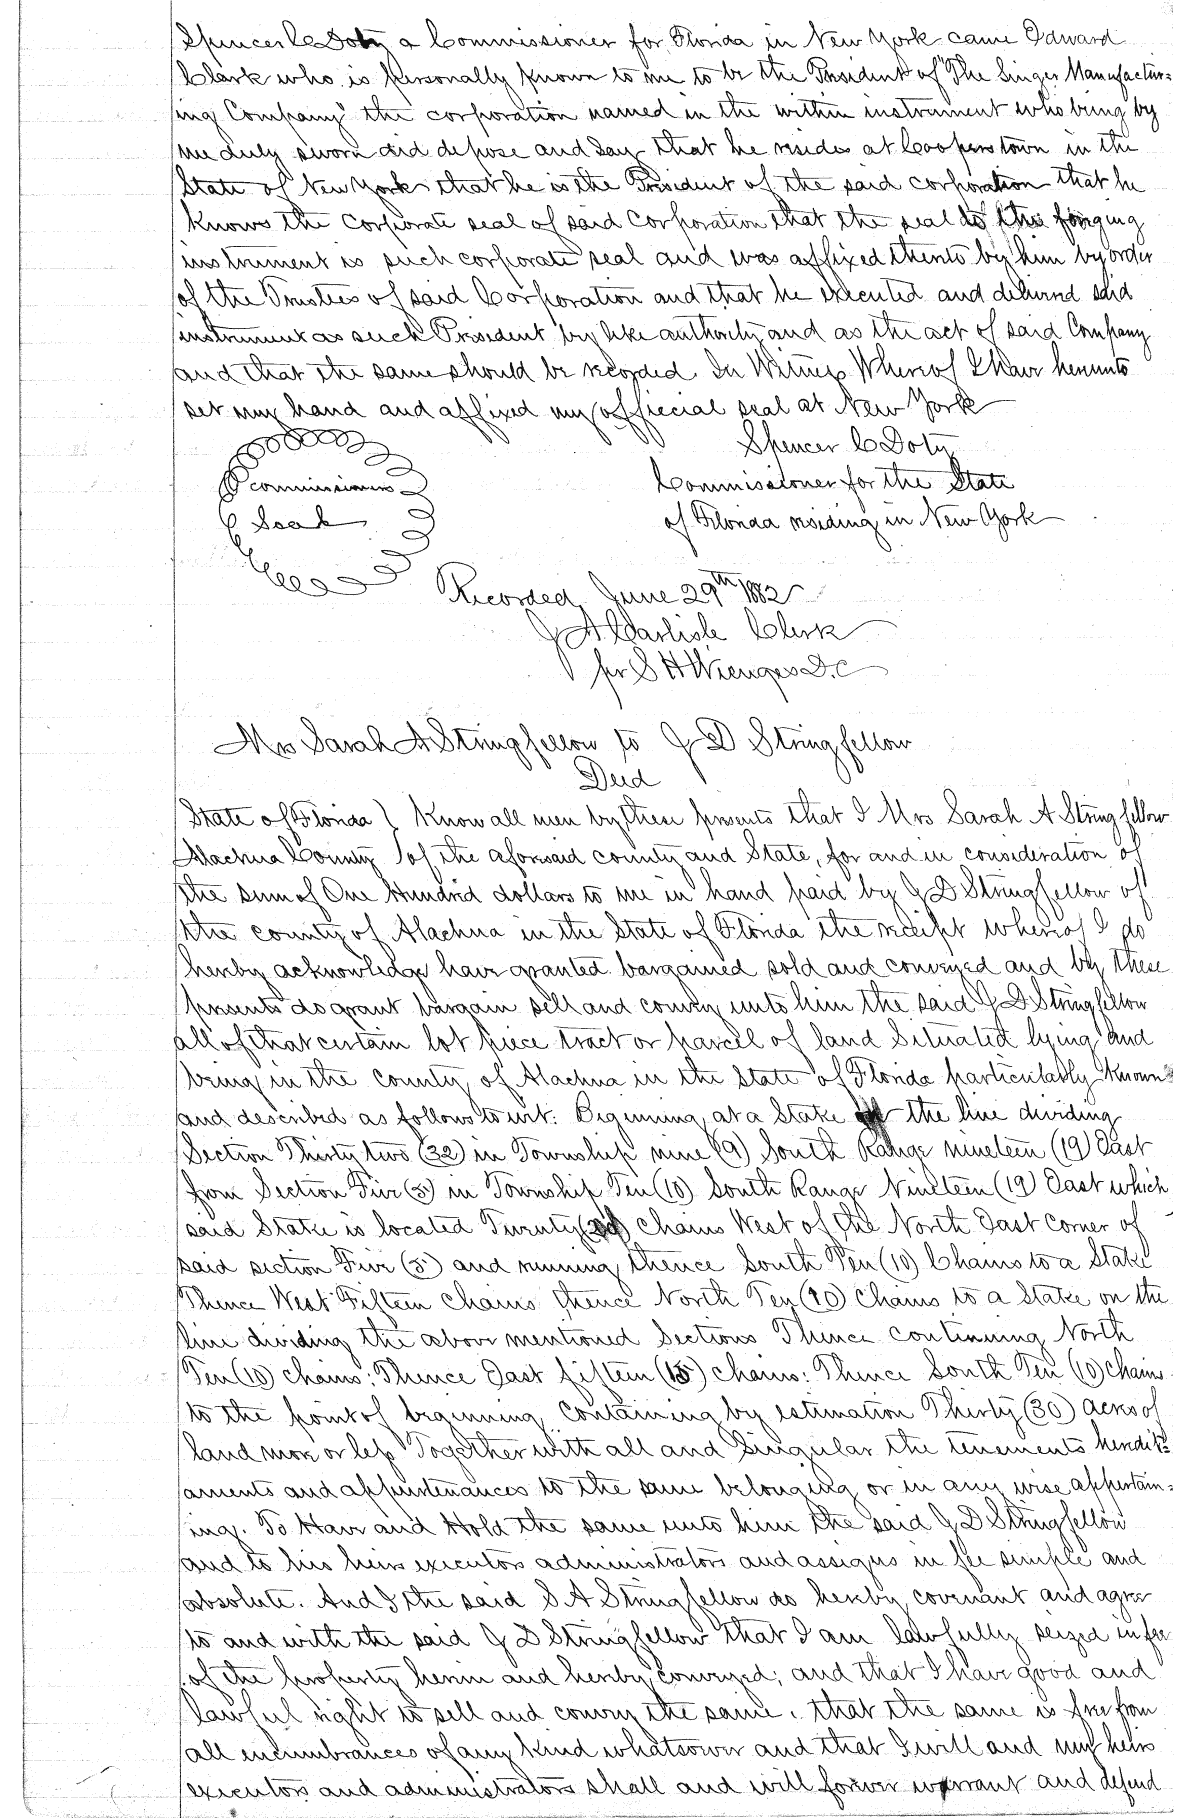 Spencer C Doty a Commissioner for Florida in New York came Edward
Clark who is personally known to me to be the President of "The Singer Manufactur=
ing Company" the corporation named in the within instrument who being by
me duly sworn did depose and say that he resides at Cooperstown in the
State of New York that he is the President of the said corporation that he
knows the corporate seal of said Corporation that the seal to the forging
instrument is such corporate seal and was affixed thereto by him by order
of the Trustees of said Corporation and that he executed and delivered said
instrument as such President by like authority and as the act of said Company
and that the same should be recorded In Witness Whereof I have hereunto
set my hand and affixed my official seal at New York
Spencer C Doty
Commissioners
Seal
Commissioner for the State
of Florida residing in New York
Recorded June 29th 1882
J A Carlisle Clerk
for S H Wienges D.C
Mrs Sarah A Stringfellow to J D Stringfellow
Deed
State of Florida } Know all men by these presents that I Mrs Sarah A Stringfellow
Alachua County } of the aforesaid county and State, for and in consideration of
the sum of One Hundred dollars to me in hand paid by J D Stringfellow of
the county of Alachua in the State of Florida the receipt whereof I do
hereby acknowledge have granted bargained sold and conveyed and by these
presents do grant bargain sell and convey unto him the said J D Stringfellow
all of that certain lot piece tract or parcel of land Situated lying and
being in the county of Alachua in the State of Florida particularly known
and described as follows to wit: Beginning at a Stake the line dividing
Section Thirty two (32) in Township nine (9) South Range nineteen (19) East
from Section Five (5) in Township Ten (10) South Range Nineteen (19) East which
said Stake is located Twenty (20) chains West of the North East Corner of
said section Five (5) and running thence South Ten (10) Chains to a Stake
Thence West Fifteen chains thence North Ten (10) Chains to a Stake on the
line dividing the above mentioned Sections Thence continuing North
Ten (10) chains: Thence East fifteen (15) chains: Thence South Ten (10) chains
to the point of beginning containing by estimation Thirty (30) acres of
land more or less Together with all and Singular the tenements heredit=
aments and appurtenances to the same belonging or in any wise appertain=
ing. To Have and Hold the same unto him the said J D Stringfellow
and to his heirs executors administrators and assigns in fee simple and
absolute. And I the said S A Stringfellow do hereby covenant and agree
to and with the said J D Stringfellow that I am lawfully seized in fee
of the property herein and hereby conveyed; and that I have good and
lawful right to sell and convey the same, that the same is free from
all encumbrances of any kind whatsoever and that I will and my heirs
executors and administrators shall and will forever warrant and defend